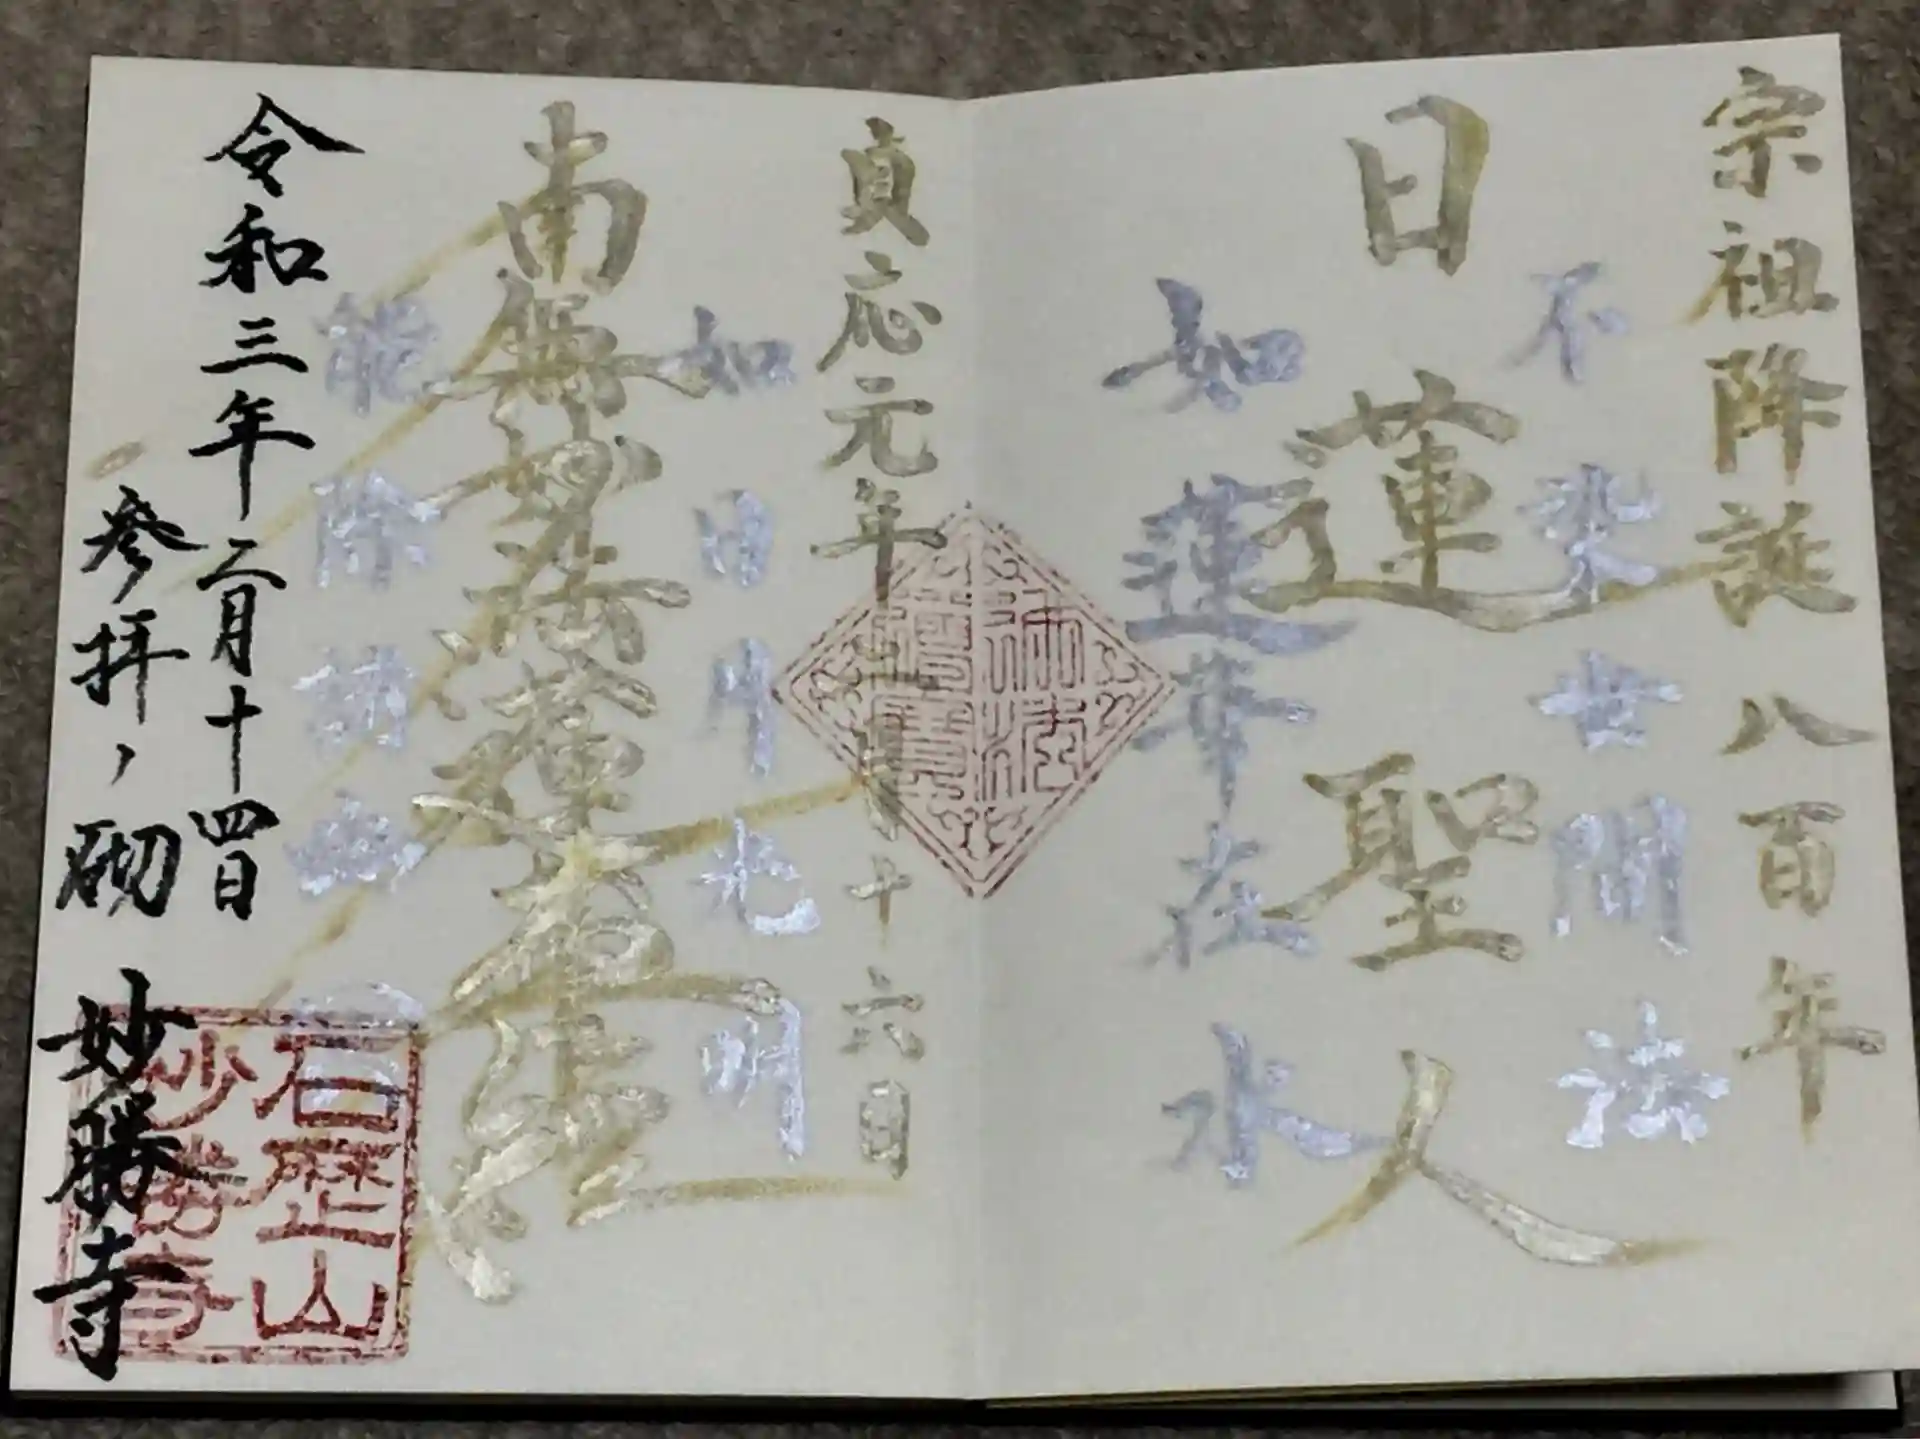 宗祖降誕八百年
不染世間法
日蓮聖人
如蓮華在水
佛法僧寶
貞応元年二月十六日
如日月光明
南無妙法蓮華経
能除諸幽冥
令和三年二月十四日
参拝ノ砌 妙勝寺
石歴山
妙勝寺